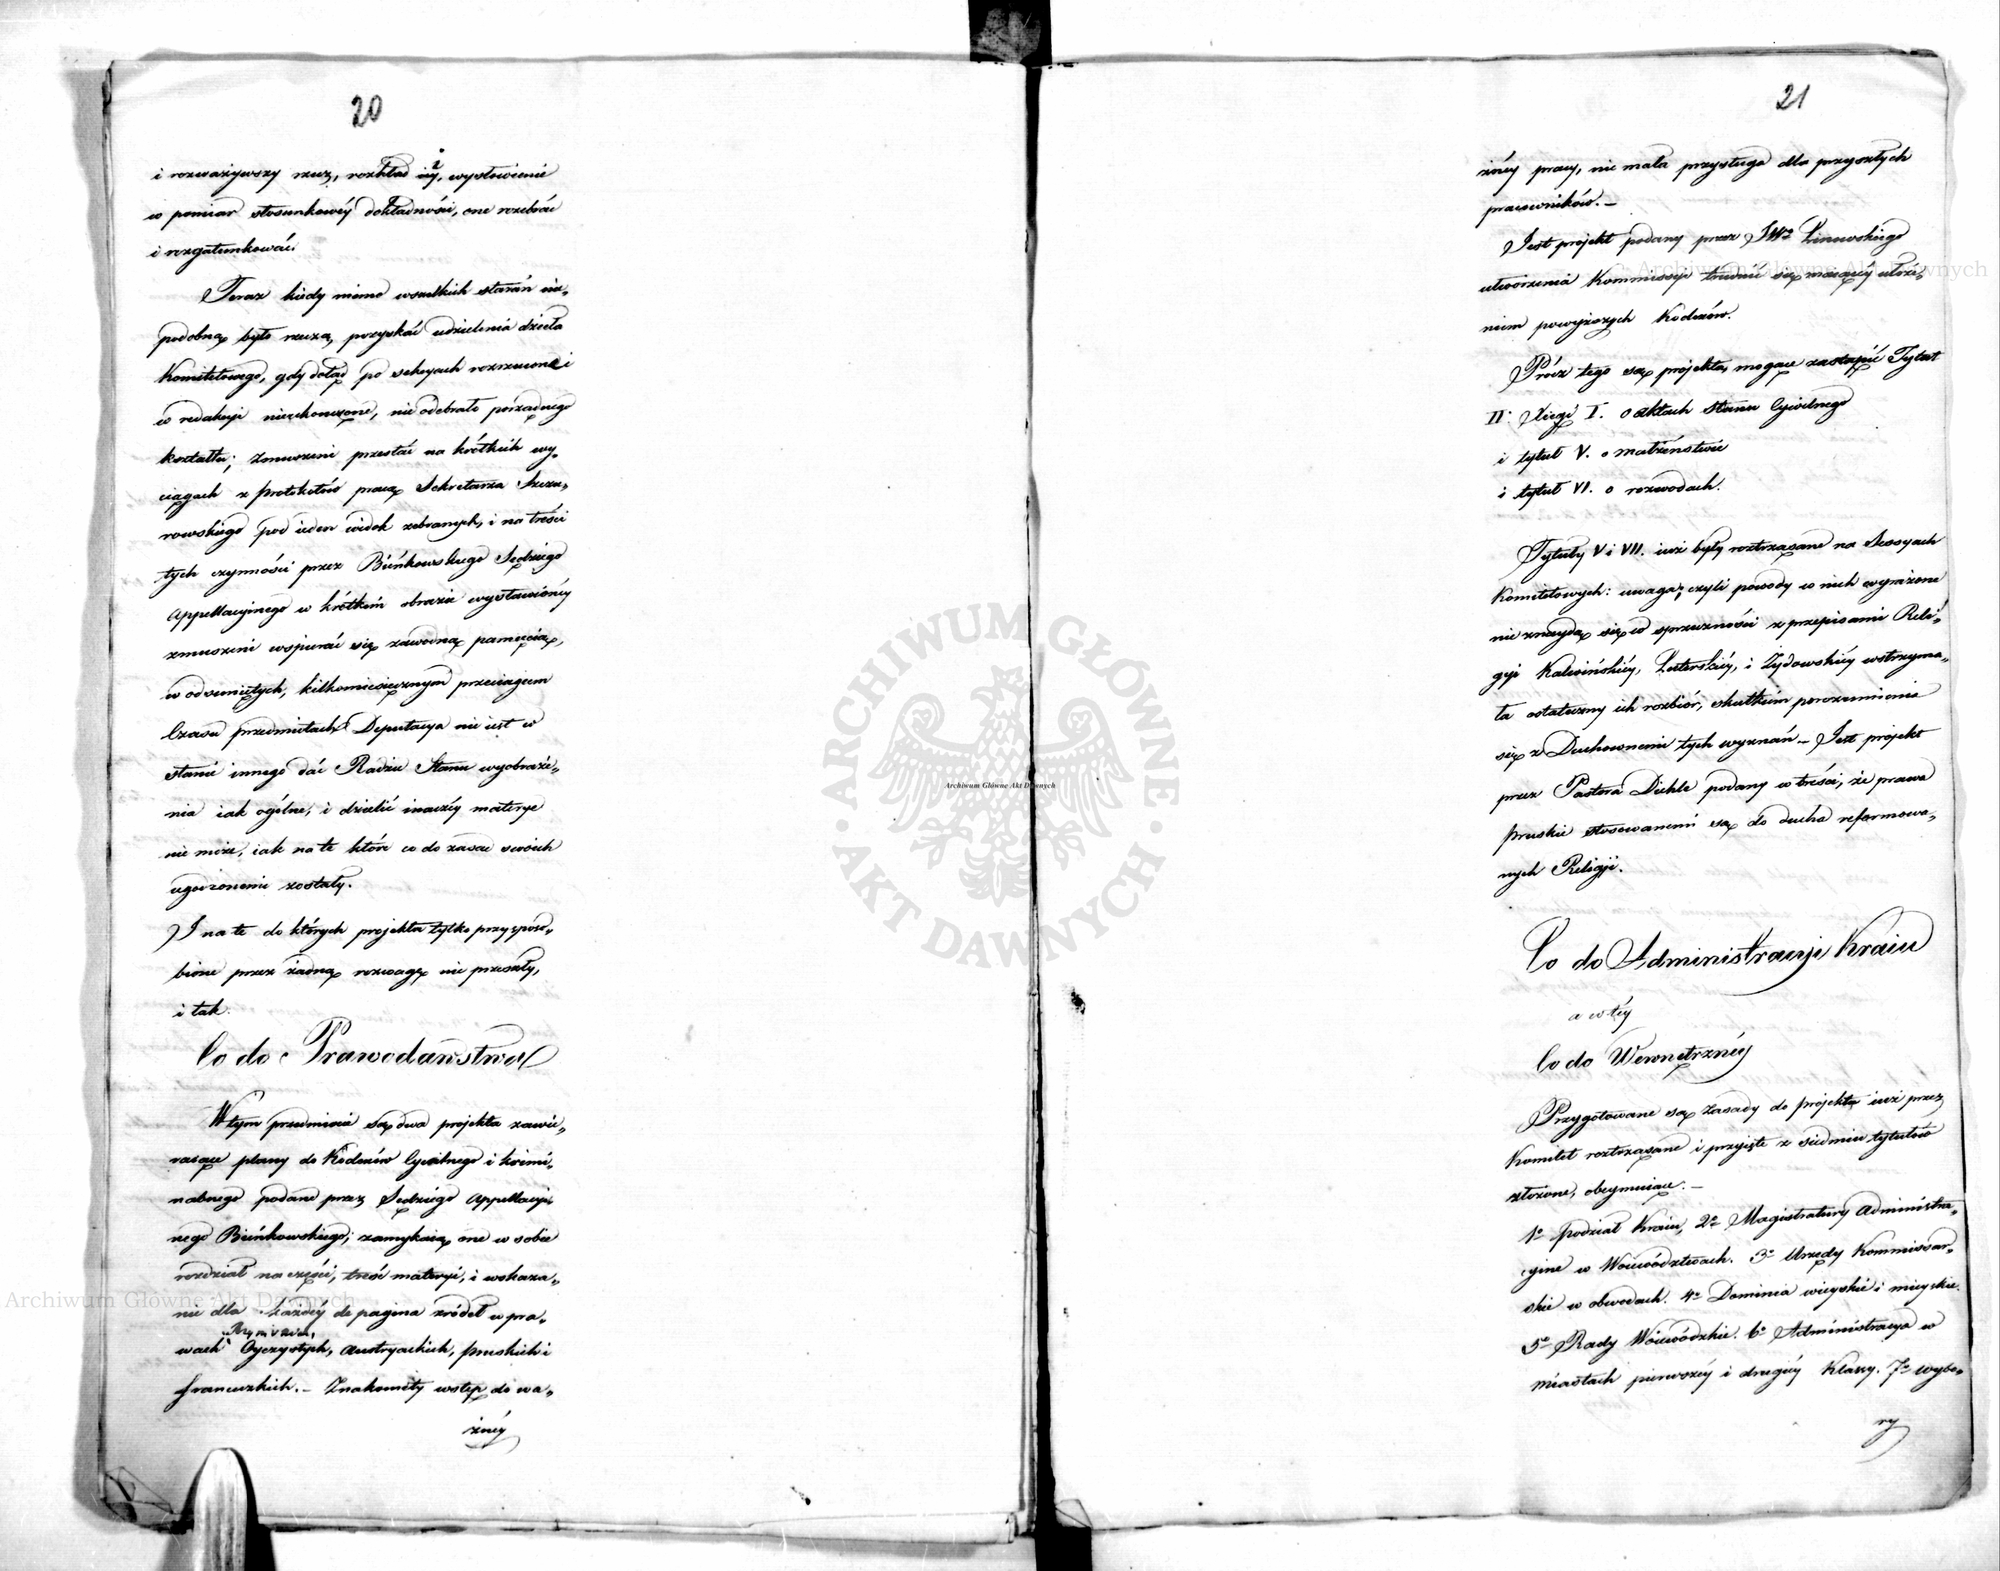 20
i rozważywszy rzecz, rozkład iéy, wysłowienie
w pomiar stosunkowéy dokładności, one rozebrać
i rozgatunkować.
Teraz kiedy mimo wszelkich starań nie-
podobną było rzeczą, pozyskać udzielenia dzieła
Komitetowego, gdy dotąd po sekcyach rozrzucone i
w redakcyi nieskończone, nie odebrało porządnego
kształtu; zmuszeni przestać na krótkich wy-
ciągach z protokółów pracą Sekretarza
rowskiego pod ieden widok zebranych, i na treści
tych czynności przez Bieńkowskiego Sędziego
Appellacyinego w krótkim obrazie wystawionéy
zmuszeni wspierać się zawodną pamięcią,
w odsuniętych, kilkomiesięcznym przeciągiem
Czasu przedmiotach Deputacya nie iest w
stanie innego dać Radzie Stanu wyobraże-
nia iak ogólne, i dzielić inaczéy materye
nie może, iak na te które co do zasad swoich
ugodzonemi zostały.
I na te do których projekta tylko przysposo-
bione przez żadną rozwagę nie przeszły,
i tak.
Co do Prawodawstwa
W tym przedmiocie są dwa projekta zawie-
raiące plany do Kodexów Cywilnego i krimi-
nalnego podane przez Sędziego Appellacyi-
nego Bieńkowskiego; zamykaią one w sobie
rozdział na części, treść materyi, i wskaza-
nie dla każdéy de pagina źródeł w pra-
Rzymskich,
wach Oyczystych, austryackich, pruskich i
francuzkich. – Znakomity wstęp do wa-
żnéy
21
żnéy pracy, nie mała przysługa dla przyszłych
pracowników. –
Jest projekt podany przez JWo Linowskiego
utworzenia Kommissyi trudnić się maiącéy ułoże-
niem powyższych Kodexów.
Prócz tego są projekta mogące zastąpić Tytuł
II. Xięgi I. o aktach stanu Cywilnego
i tytuł V. o małżeństwie
i tytuł VI. o rozwodach.
Tytuły V i VII. iuż były roztrząsane na Sessyach
Komitetowych: uwaga; czyli powody w nich wyrażone
nie znaydą się w sprzeczności z przepisami Reli-
gyi Kalwińskiéy, Luterskiéy, i Żydowskiéy wstrzyma-
ła ostateczny ich rozbiór, skutkiem porozumienia
się z Duchownemi tych wyznań – Jest projekt
przez Pastora Diehla podany w treści, że prawa
pruskie stosowanemi są do ducha reformowa-
nych Religji.
Co do Administracyi Kraiu
a w téy
Co do Wewnętrznéy
Przygotowane są zasady do projektu iuż przez
Komitet roztrząsane i przyięte z siedmiu tytułów
złożone, obeymuiące. –
1o podział Kraiu, 2o Magistratury administra-
cyine w Woiewództwach. 3o Urzędy Kommissar-
skie w obwodach. 4o Dominia wieyskie i mieyskie.
5o Rady Woiewódzkie. 6o Administracya w
miastach pierwszéy i drugiéy Klassy. 7o wybo-
ry
Archiwum Główne Akt Dawnych
Archiwum Główne Akt Dawnych
Archiwum Główne Akt Dawnych
ARCHIWUM GŁÓWNE AKT DAWNYCH